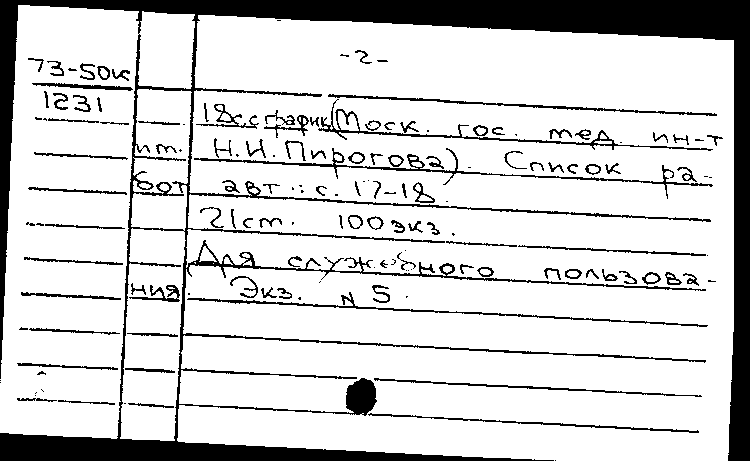 -2-
73-50к
1231
18с. с график (Моск. гос. мед. ин-т
им. Н.И. Пирогова). Список ра-
бот авт.: с. 17-18.
21 см. 100 экз.
Для служебного пользова-
ния. Экз. N 5.